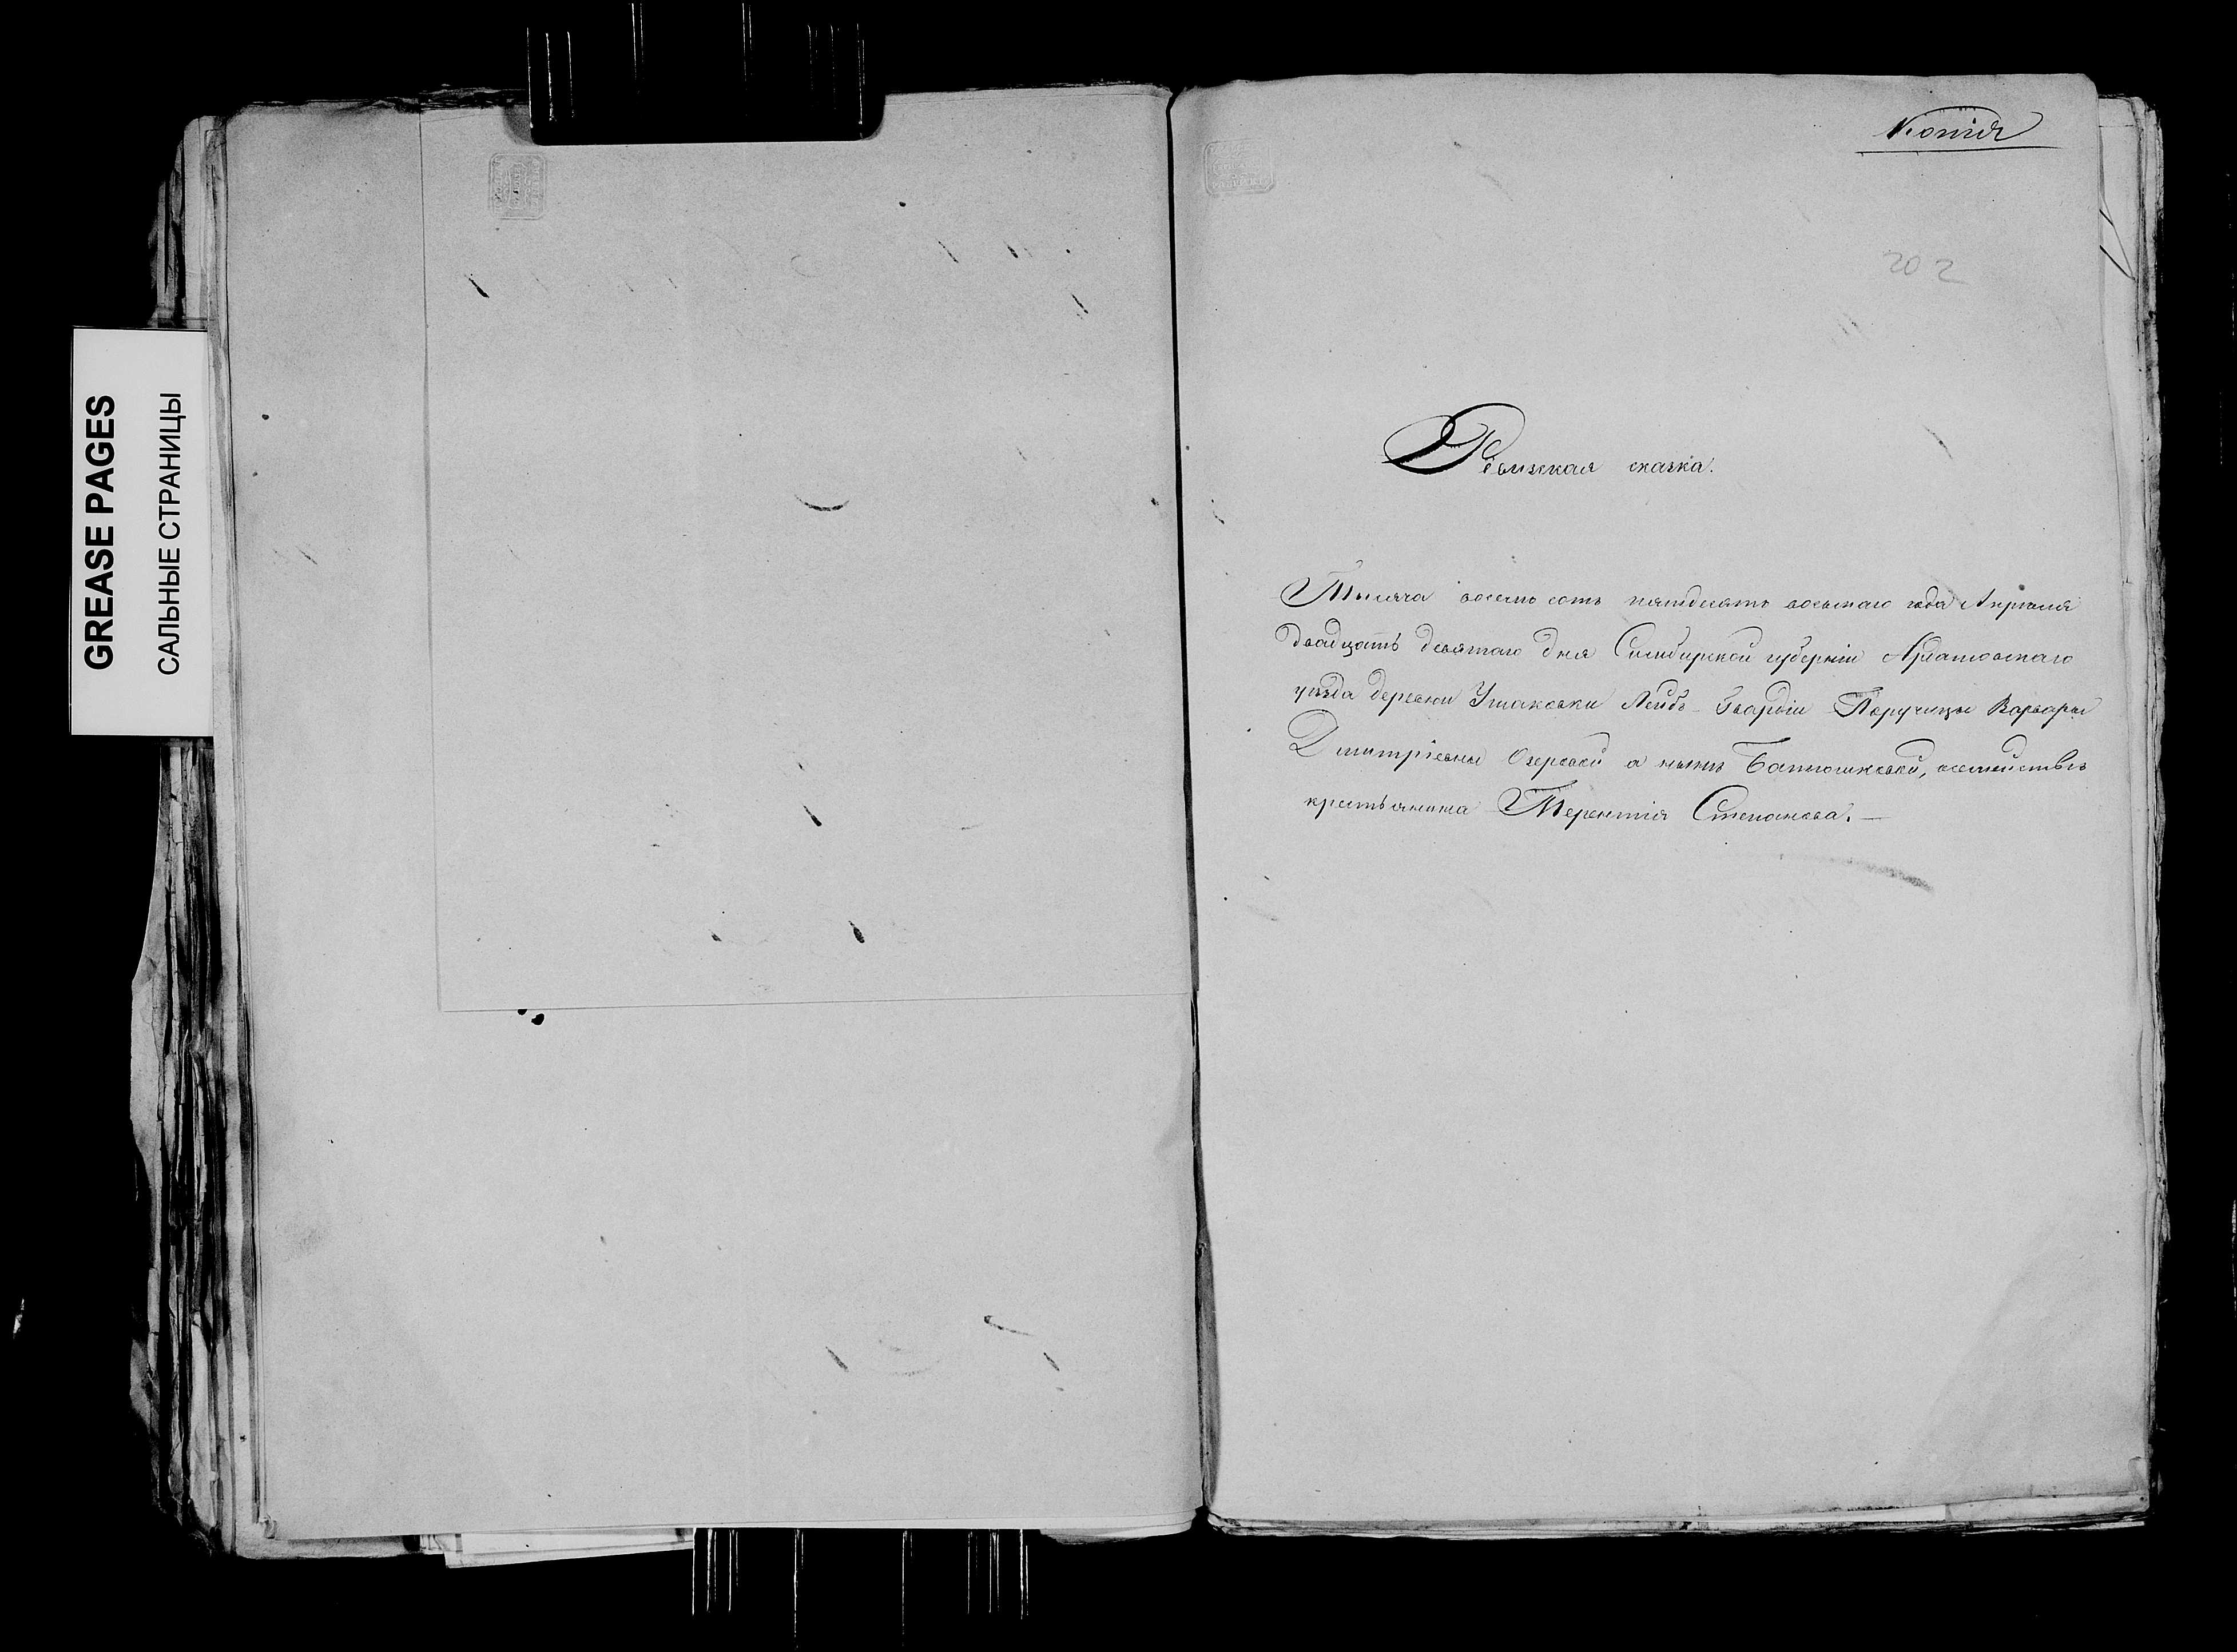 GREASE PAGES
САЛЬНЫЕ СТРАНИЦЫ
Копія
202
Ревизская сказка.
Тысяча восемь сотъ пятдесятъ восьмаго года Апрѣля
двадцать девятаго дня Симбирской губерніи Ардатовскаго
уѣзда деревни Ушаковки Лейбъ-Гвардіи Поручицы Варвары
Дмитріевны Озеровой а нынѣ Батюшковой, о семействѣ
крестьянина Терентія Степанова. —